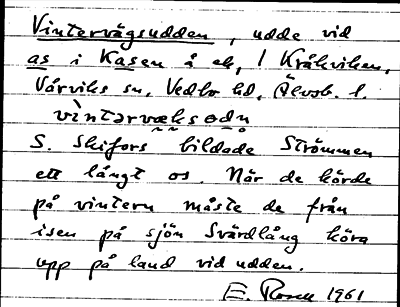 Vintervägsudden, udde vid
as i Kasen å ek, / Kråkviken,
Vårviks sn. Vedbo hd, Älvsb. l.
vìntərvæksødn
S. Skifors bildade Strömmen
ett långt os. När de körde
på vintern måste de från
isen på sjön Svärdlång köra
upp på land vid udden.
E. Rosell 1961